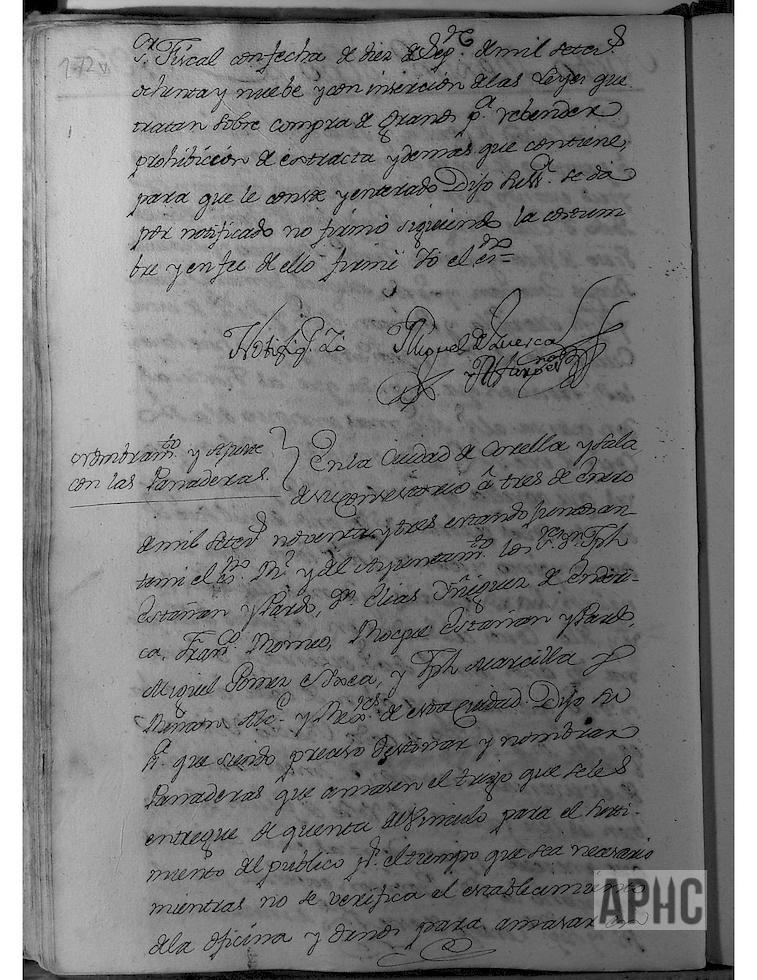 172v
Sr. Fiscal con fecha de diez de Sepe. de mil setecs.
ochenta y nuebe y con insercion de las Leyes que
tratan sobre compra de Granos pa. rebender
prohibicion de extracta y demas que contiene,
para que le conste y enterado Dijo Su Sa. se da
por notificado no firmó siguiendo la costum
bre y en fee de ello firmé Yo el esno=
Notifiq. Yo Miguel de Luesca
Nombramto. y Ajuste
con las Panaderas.
En la Ciudad de Corella y Sala
de su Consistorio á tres de Enero
de mil setecs. noventa y tres estando juntos an-
temi el esno. Rl. y del Ayuntamto. los Sres. Dn. Jph
Estañan y Pardo, Dn. Elias Yñiguez de
ca, Franco. Romeo, Roque Estañan y Pardo,
Miguel Gomez y Jph Marcilla
Alce. y Rexres. de esta Ciudad. Dijo Su
Sa. que siendo preciso destinar y nombrar
Panaderas que amasen el trigo que se les
entregue de quenta del Vinculo para el surti-
miento del publico pr. el tiempo que sea necesario
mientras no se verifica el establecimiento
de la oficina y para amasar
APHC